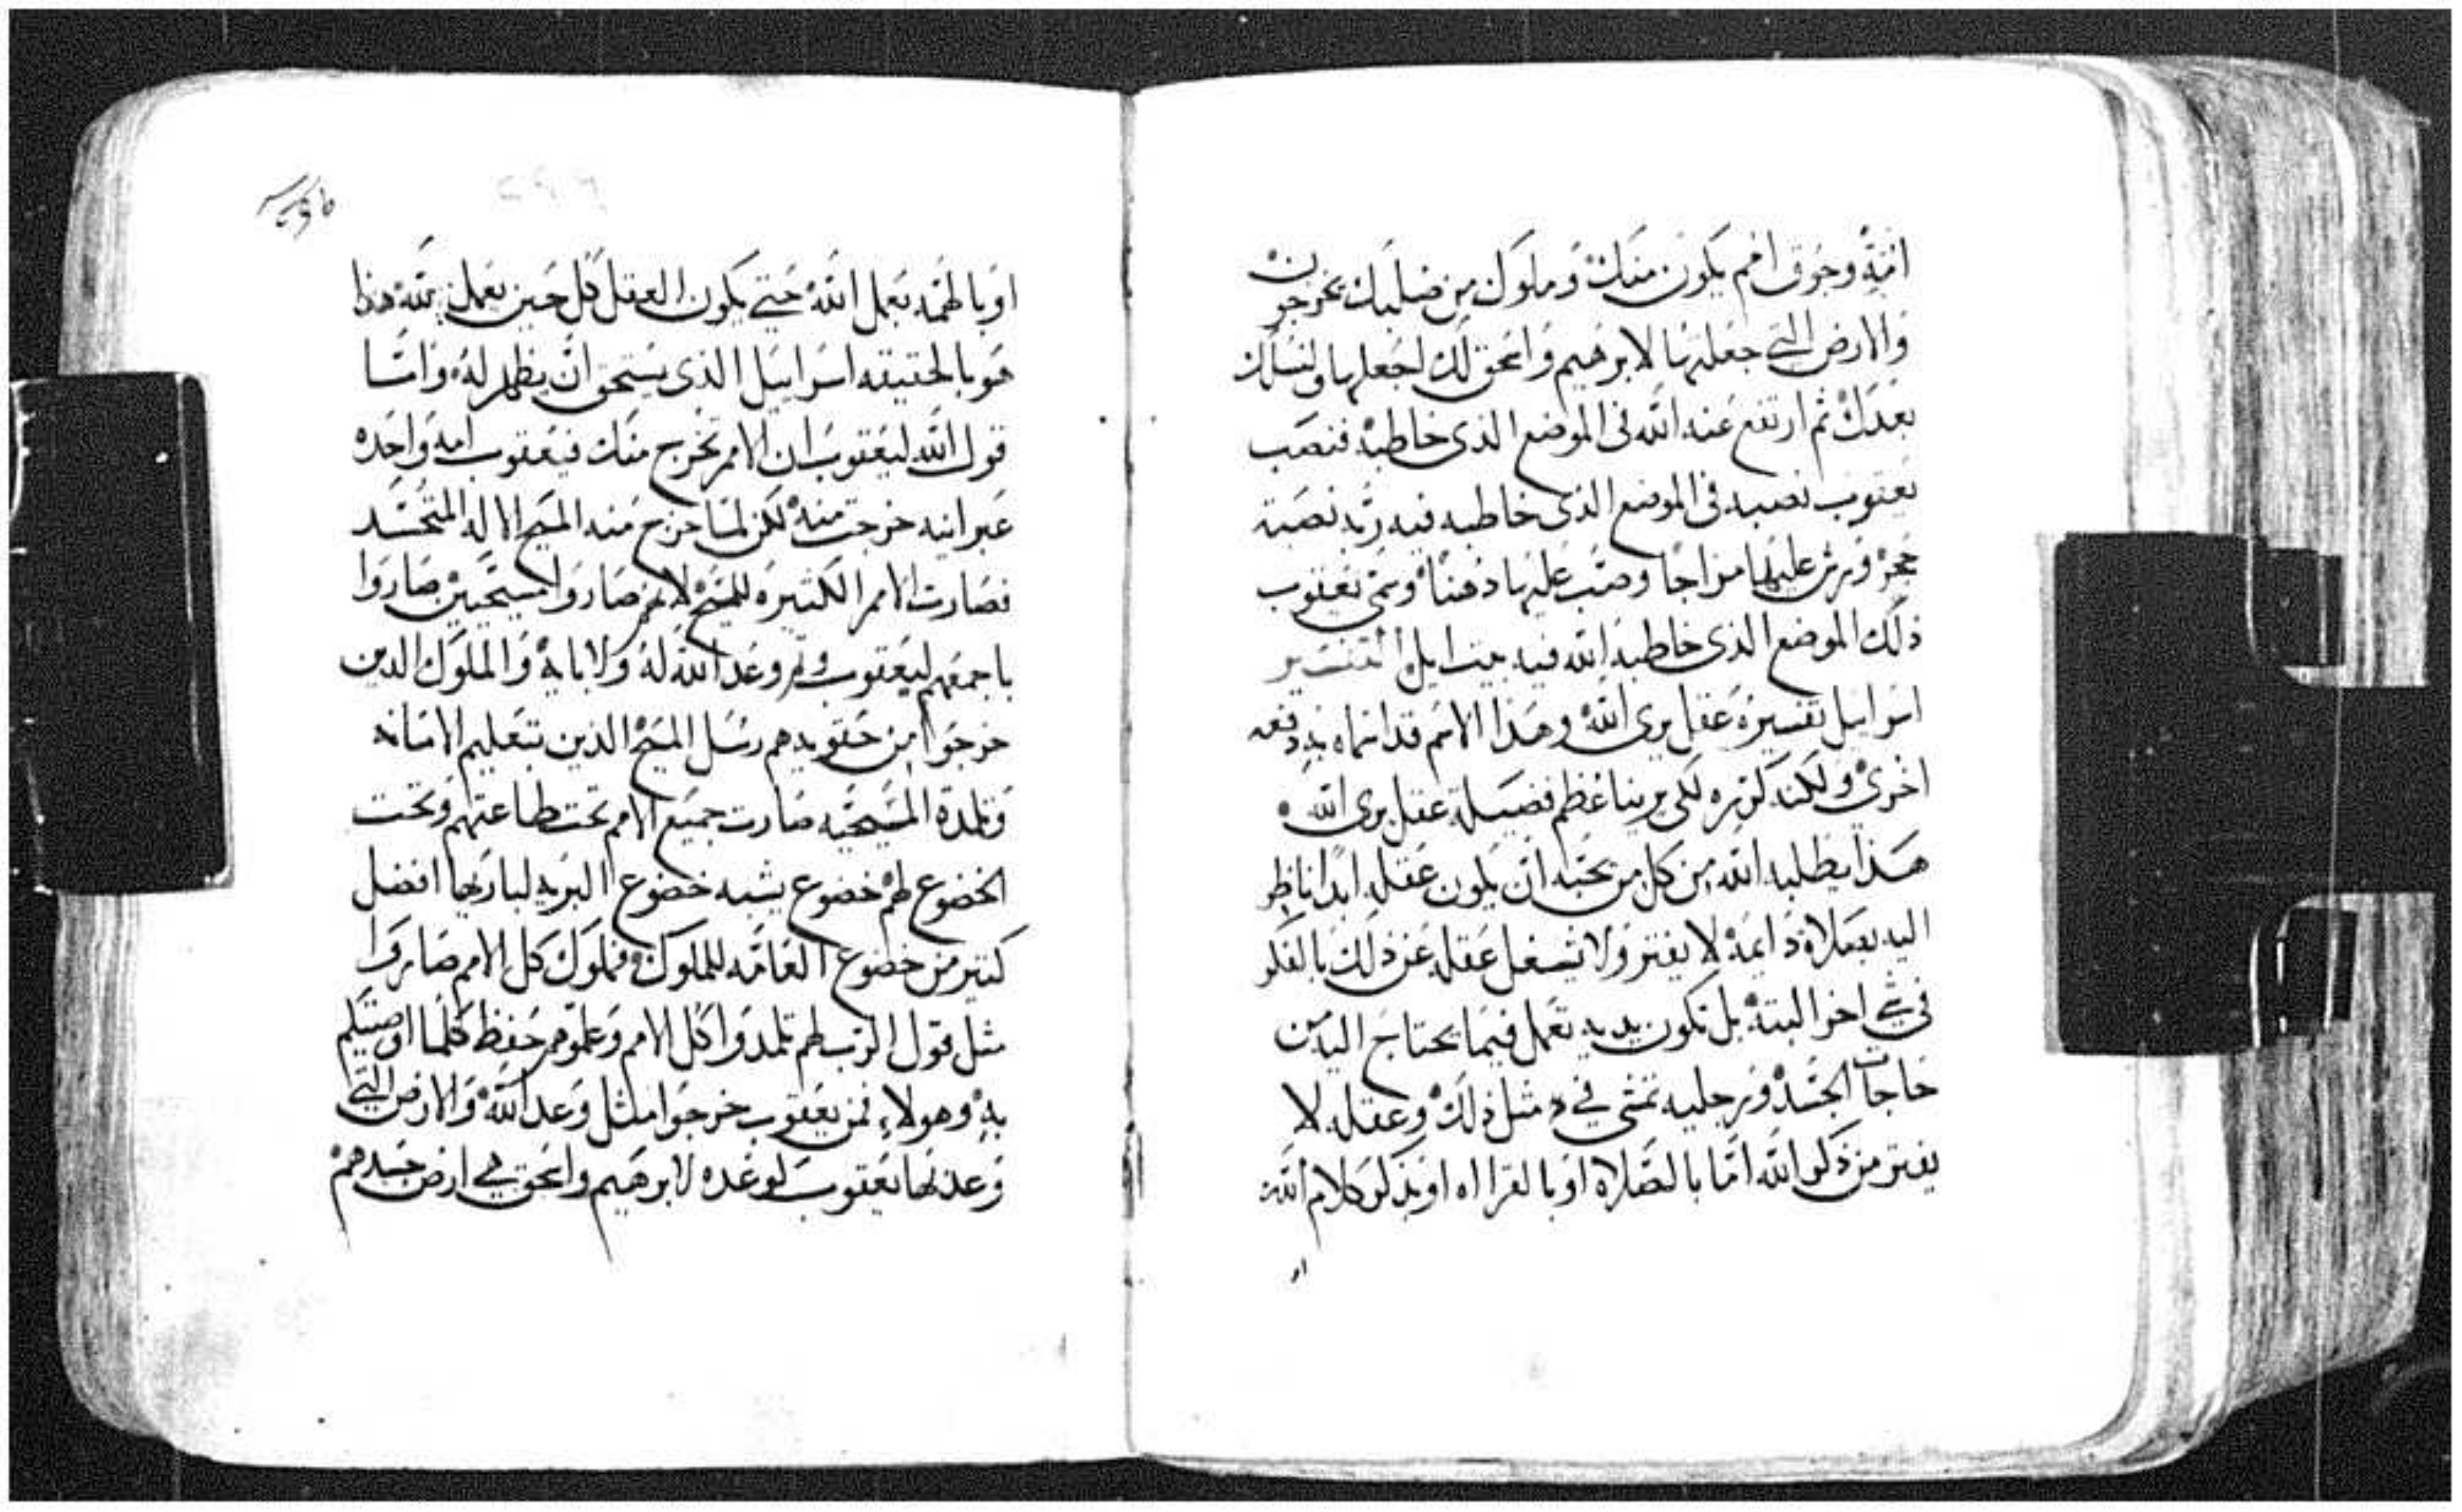 امة وجوق امم يكون منك وملوك من صلبك يخرجون
والارض التى جعلتها لابرهيم واسحق لك اجعلها ولنسلك
بعدك ثم ارتفع عنه الله فى الموضع الذى خاطبه فنصب
يعقوب نصبه فى الموضع الذى خاطبه فيه ربه نصبة
حجر ورش عليها مزاجا وصب عليها دهنا وسمى يعقوب
ذلك الموضع الذى خاطبه الله فيه بيت ايل التفسير
اسراييل تفسيره عقل يرى الله وهذا الاسم قد اسماه به دفعه
اخرى ولكنه كرره لكى يرينا عظم فضيلة عقل يرى الله
هذا يطلبه الله من كل من يحبه ان يكون عقله ابدا ناظر
اليه بصلاة دايمة لا يفتر ولا يشغل عقله عن ذلك بالفكر
فى شي اخر البتة بل تكون يديه تعمل فيما يحتاج اليه من
حاجات الجسد ورجليه تمشى في مثل ذلك وعقله لا
يفتر من ذكر الله اما بالصلاه او بالقرااه او بذكر كلام الله
او
او بالهمه بعمل الله حتي يكون العقل كل حين يعمل عمله هذا
هو بالحقيقه اسراييل الذى يستحق ان يظهر له واما
قول الله ليعقوب ان الامم تخرج منك فيعقوب امه واحده
عبرانيه خرجت منه لكن لما خرج منه المسيح الاله المتجسد
فصارت الامم الكثيره للمسيح لانهم صاروا مسيحيين صاروا
باجمعهم ليعقوب وتم وعد الله له ولابايه والملوك الدين
خرجوا من حقويه هم رسل المسيح الذين بتعليم الامانه
وتلمدة المسيحيه صارت جميع الامم تحت طاعتهم وتحت
الخضوع لهم خضوع يشبه خضوع البريه لباريها افضل
كتير من خضوع العامه للملوك فملوك كل الامم صاروا
مثل قول الرب لهم تلمدوا كل الامم وعلموهم حفظ كلما اوصيتكم
به وهولاء فمن يعقوب خرجوا مثل وعد الله والارض التي
وعد بها يعقوب كوعده لابرهيم واسحق هي ارض جسدهم